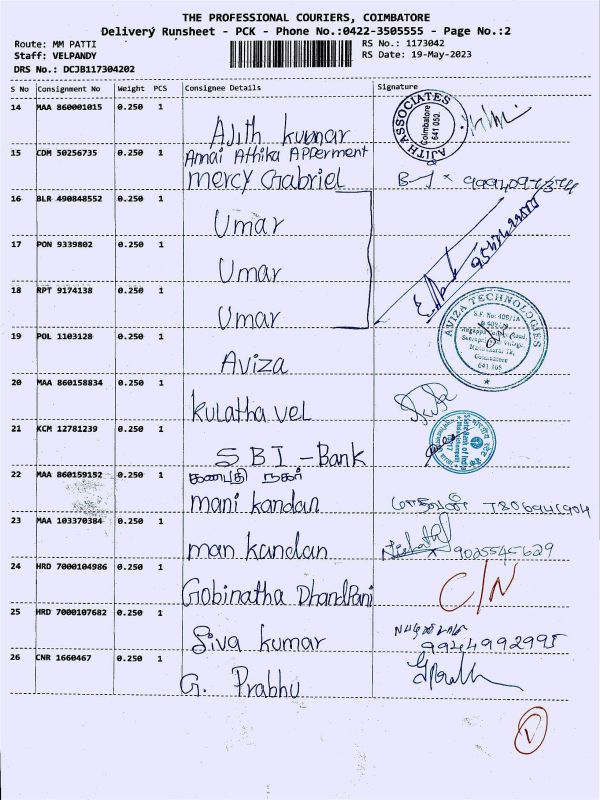 THE PROFESSIONAL COURIERS, COIMBATORE
Delivery Runsheet - PCK - Phone No.:0422-3505555 - Page No.:2
Route: MM PATTI
RS No.: 1173042
Staff: VELPANDY
RS Date: 19-May-2023
DRS No.: DCJB117304202
S No Consignment No Weight PCS Consignee Details Signature
14 MAA 860001015 0.250 1 Ajith kumar
AJITH ASSOCIATES Coimbatore 641 052.
15 CDM 50256735 0.250 1 Amai Athika Apperment
mercy Gabriel
16 BLR 490848552 0.250 1 Umar
17 PON 9339802 0.250 1 Umar
18 RPT 9174138 0.250 1 Umar
19 POL 1103128 0.250 1 Aviza
AVIZA TECHNOLOGIES
Coimbatore
20 MAA 860158834 0.250 1 kulatha vel
21 KCM 12781239 0.250 1 SBI - Bank
State Bank of India
22 MAA 860159152 0.250 1 கணபதி நகர்
mani kandan
23 MAA 103370384 0.250 1 man kandan 9025545629
24 HRD 7000104986 0.250 1 Gobinatha DhandPani C/N
25 HRD 7000107682 0.250 1 Siva kumar
9944992995
26 CNR 1660467 0.250 1 G. Prabhu